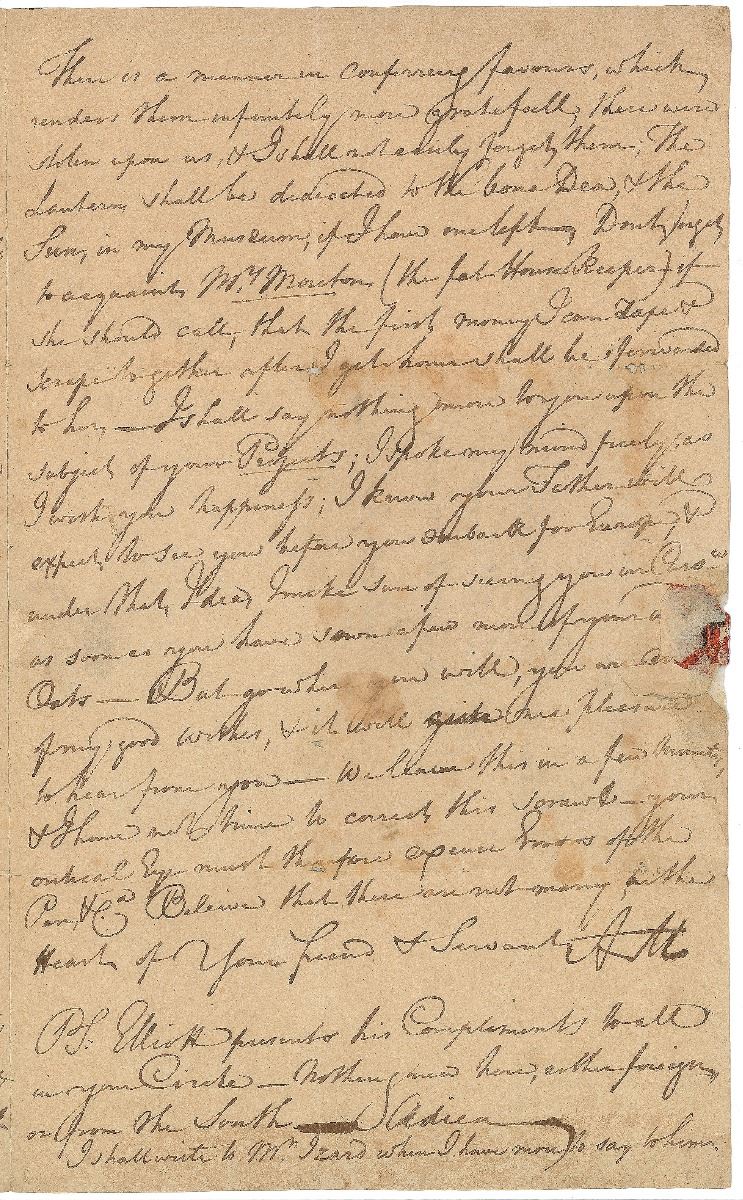 There is a manner in conferring favours, which
renders them infinitely more gratefull, these were
stolen upon us, & I shall not easily forget them; The
Lantern shall be dedicated to the bona Dea, & the
Sun, in my Museum, if I have one left— Don't forget
to acquaint Mrs Moreton (the fat House Keeper) if
she should call, that the first money I can rape &
scrape together after I get home shall be forwarded
to her, — I shall say nothing more to you upon the
subject of your Projects; I spoke my mind freely, as
I wish you happiness; I know your Father will
expect to see you before you embark for Europe, &
under that Idea, I make sure of seeing you in Caro
as soon as you have sown a few more of your
Oats — But go where you will, you are
of my good wishes, & it will give me pleasure
to hear from you — We leave this in a few minutes,
& I have not time to correct this scrawl — your
critical Eye must therefore excuse Errors of the
Pen, &Ca Beleive that there are not many, in the
Heart, of Your friend & Servant, AM
PS. Elliott presents his Compliments to all
in your Circle — Nothing new here, either foreign,
or from the South — Adieu —
I shall write to Mr Izard when I have more to say to him.